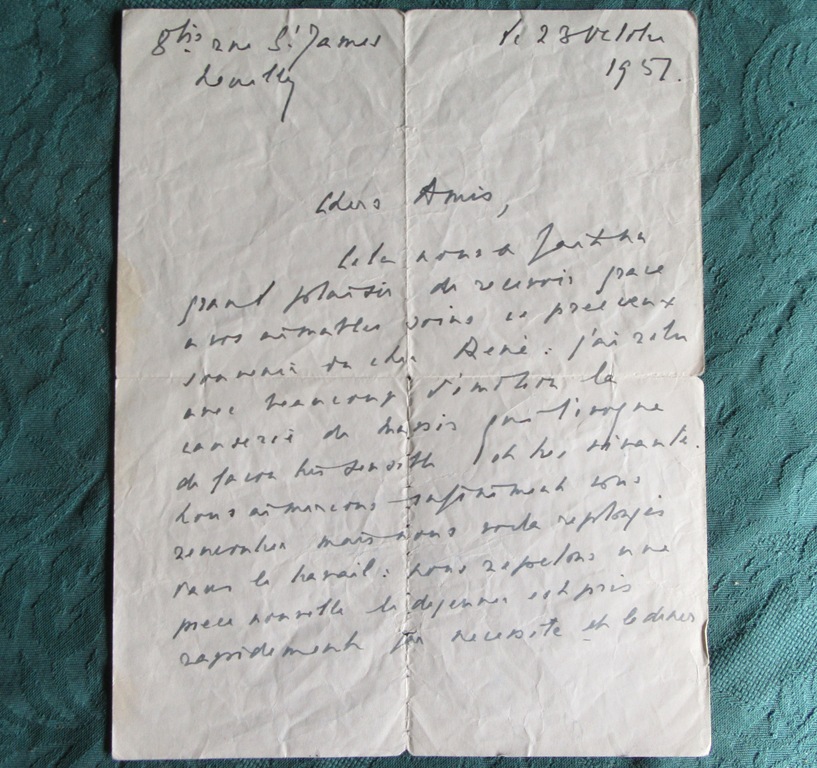 8bis rue St James
Neuilly
le 23 Octobre
1951.
Chers Amis,
Cela nous a fait un
grand plaisir de recevoir grace
a vos aimables soins ce precieux
souvenir du cher René : j'ai relu
avec beaucoup d'émotion la
causerie de Marsis qui l'évoque
de façon très sensible et très vivante.
Nous aimerions infiniment vous
rencontrer mais nous voila replongés
dans le travail : nous repetons une
piece nouvelle le dejeuner est pris
rapidement par necessité et le diner